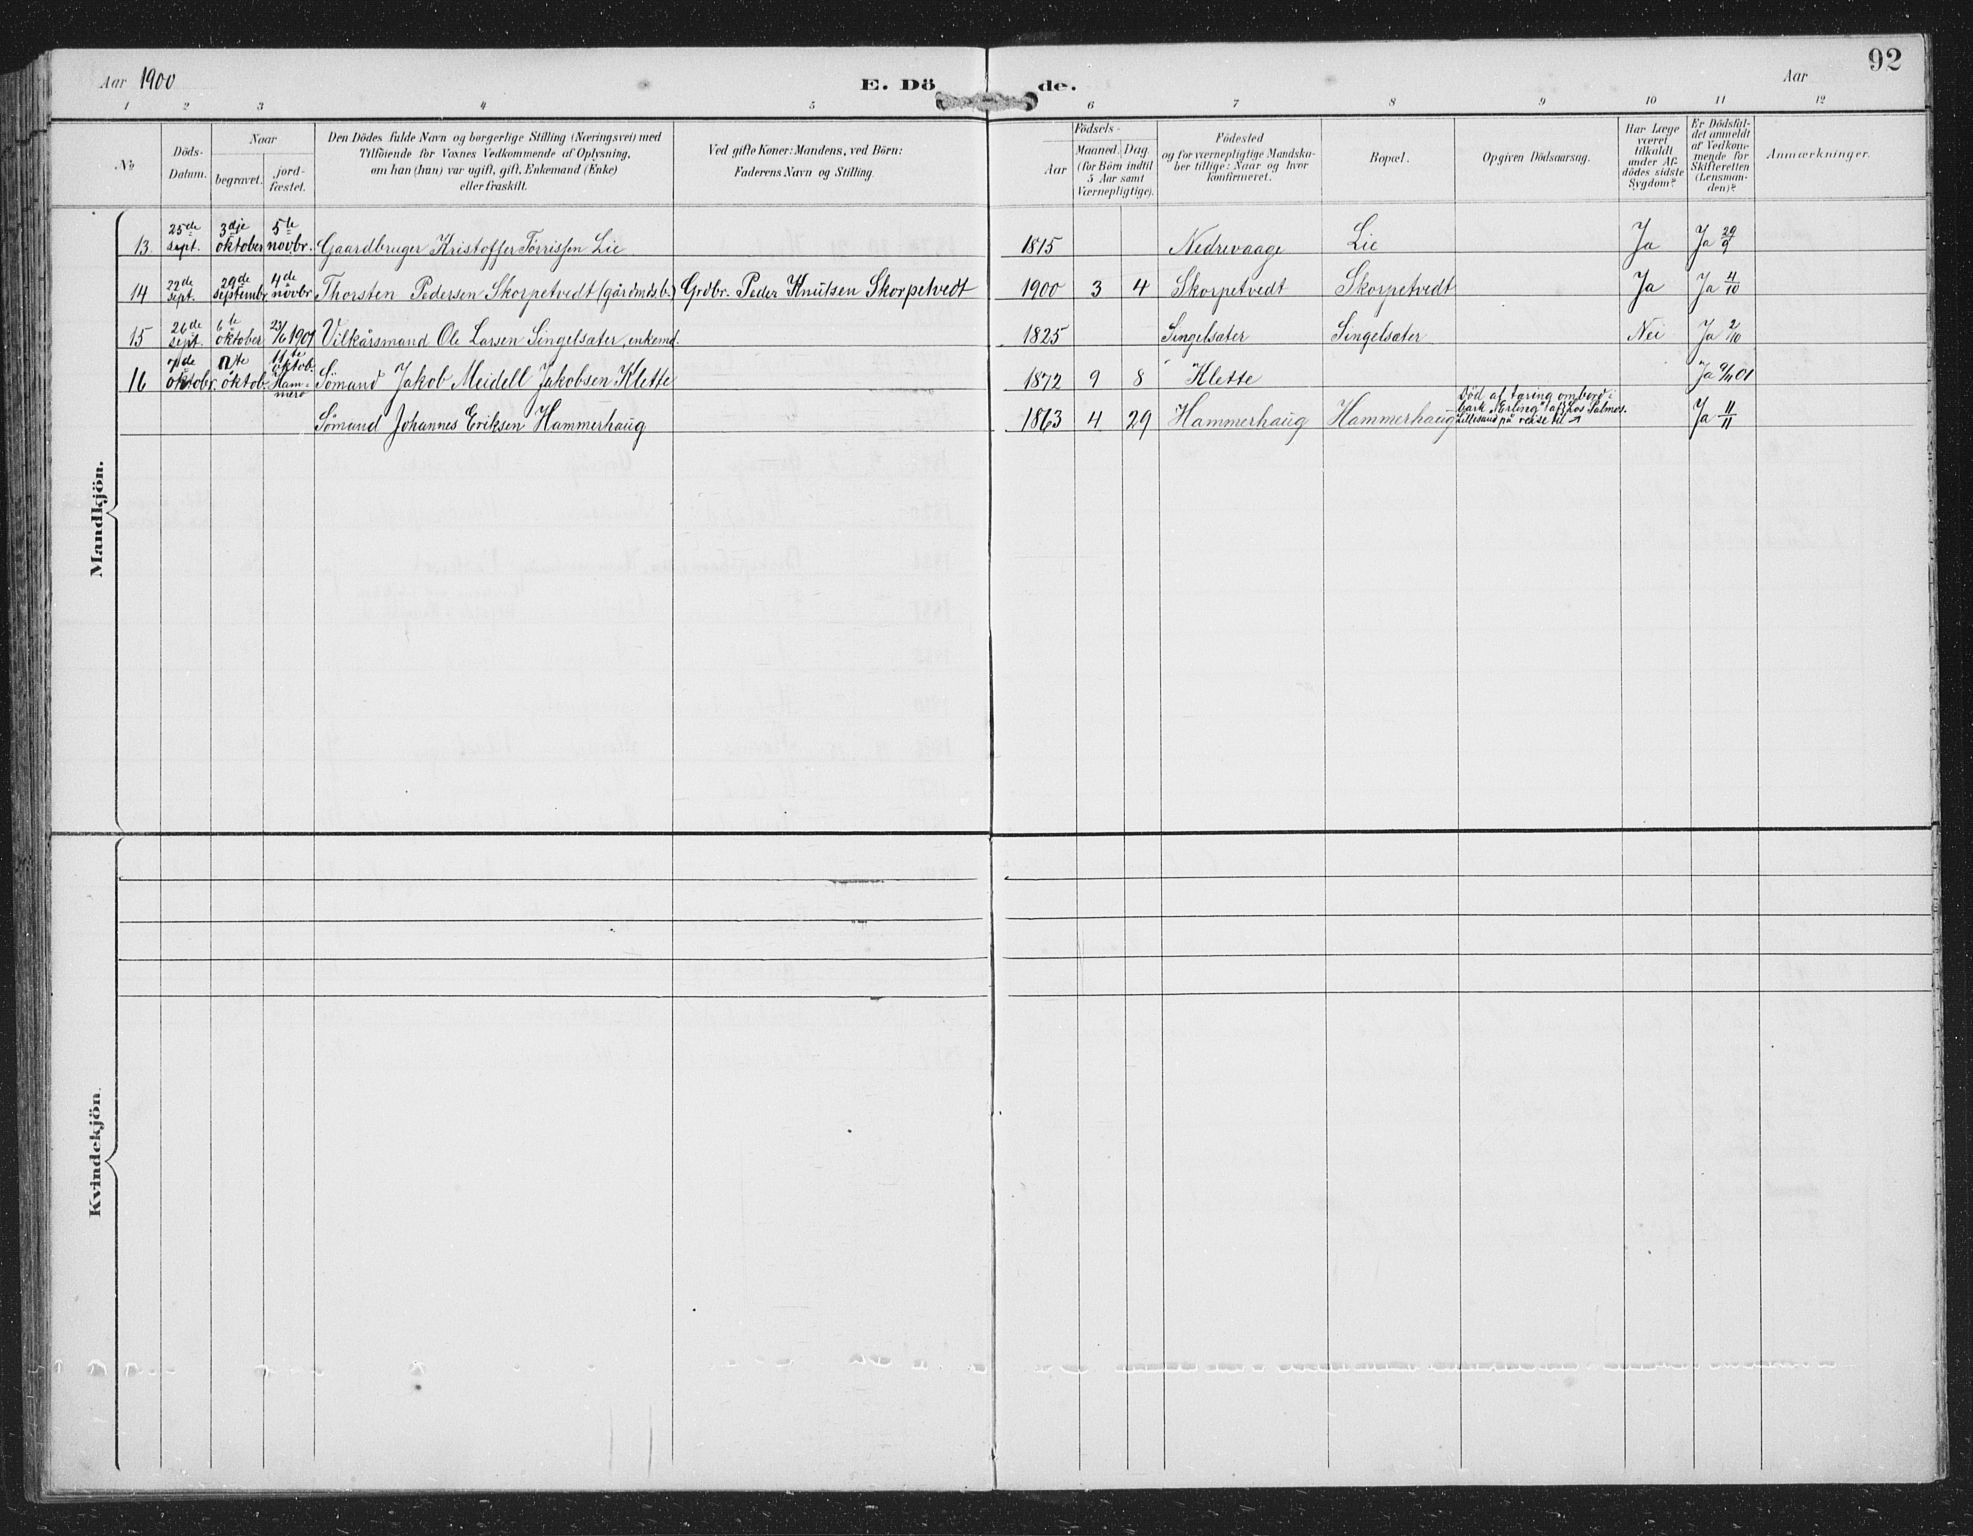 92
Aar 1900
E. Dö de.
Aar
1 2 3 4 5 6 7 8 9 10 11 12
No
Döds-
Datum.
Naar
begravet.
jord-
fæstet.
Den Dödes fulde Navn og borgerlige Stilling (Næringsvei) med
Tilföiende for Voxnes Vedkommende af Oplysning,
om han (hun) var ugift, gift, Enkemand (Enke)
eller fraskilt.
Ved gifte Koner: Mandens, ved Börn:
Faderens Navn og Stilling.
Födsels-
Aar
Maaned. Dag
(for Börn indtil
5 Aar samt
Værnepligtige).
Födested
og for værnepligtige Mandska-
ber tillige: Naar og hvor
konfirmeret.
Bopæl.
Opgiven Dödsaarsag.
Har Læge
været
tilkaldt
under Af-
dödes sidste
Sygdom?
Er Dödsfal-
det anmeldt
af Vedkom-
mende for
Skifteretten
(Lensman-
den)?
Anmærkninger.
Mandkjön.
13. 25de sept. 3dje oktober 5te novbr. Gaardbruger Kristoffer Tørrissen Lie 1815 Nedrevaage Lie Ja Ja 29/9
14 22de sept. 29de septembr 4de novbr Thorsten Pedersen Skorpetvedt (gårdmdsb.) Grdbr. Peder Knutsen Skorpetvedt 1900 3 4 Skorpetvedt Skorpetvedt Ja Ja 4/10
15 26de sept. 6te oktober 23/6 1901 Vilkårsmand Ole Larsen Singelsæter, enkemd. 1825 Singelsæter Singelsæter Nei Ja 2/10
16 oktobr. oktob. 11te oktob. Ham- Sømand Jakob Meidell Jakobsen Klette 1872 9 8 Klette Ja
Sømand Johannes Eriksen Hammerhaug 1863 4 29 Hammerhaug Hammerhaug Ja 11/11
Død af tæring ombord i
bark "Erling" af
Lillesand på reise til
Kvindekjön.